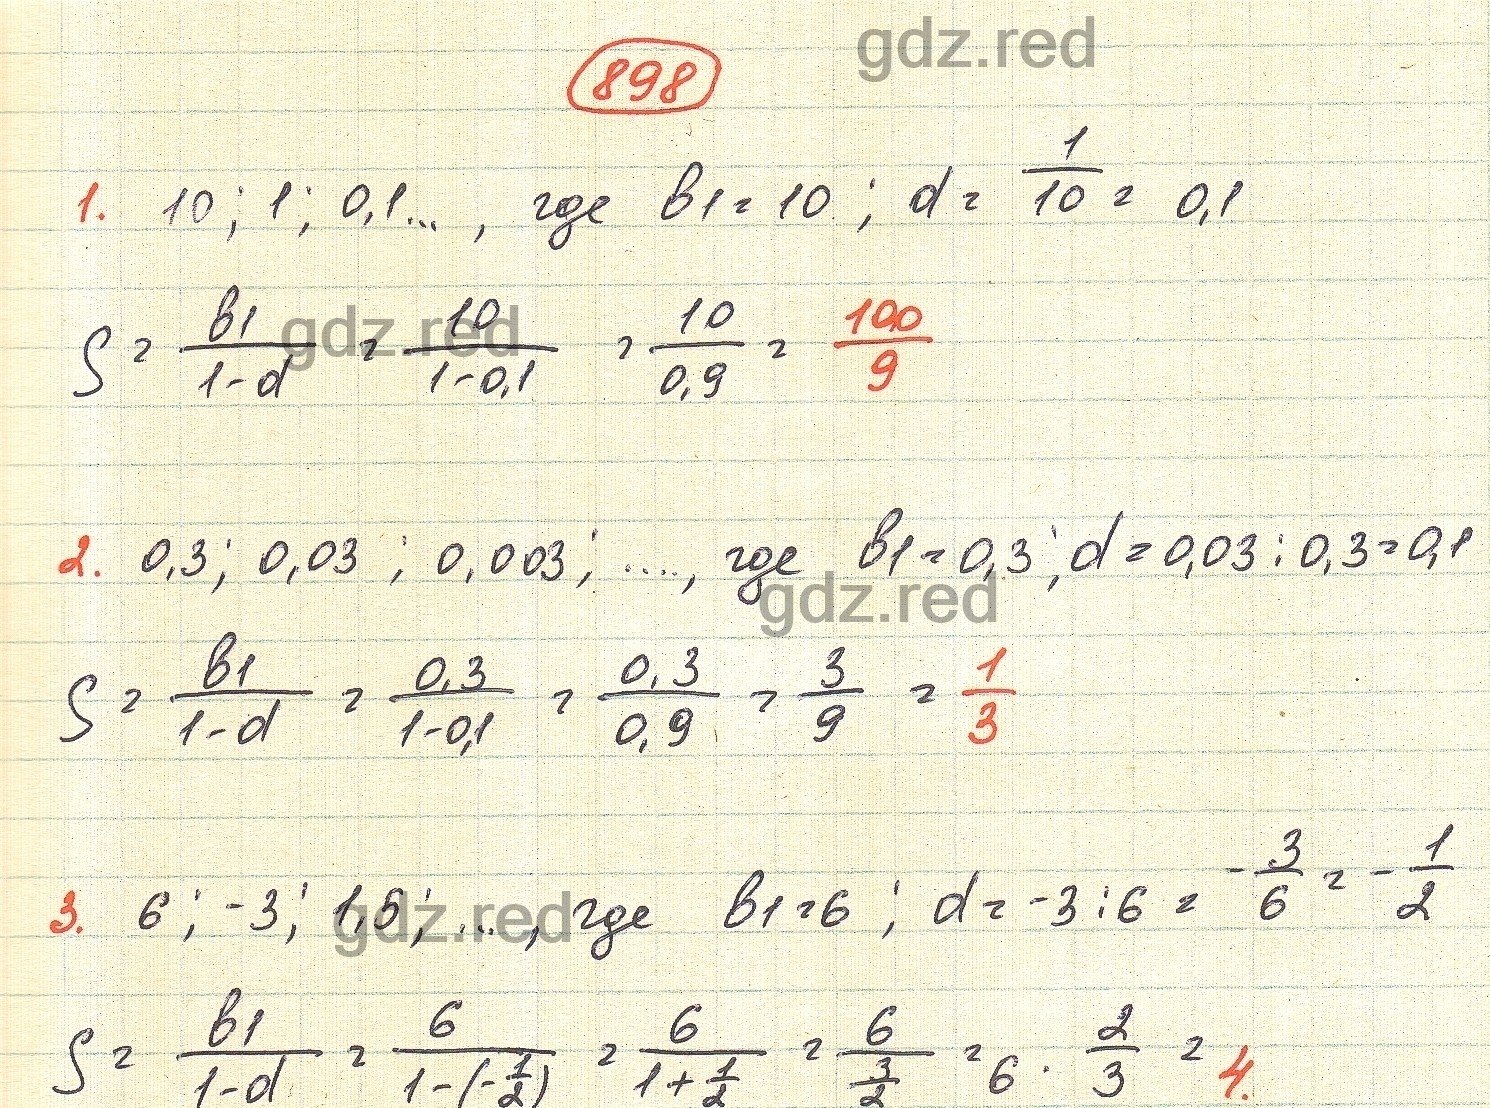 gdz.red
898
1. 10; 1; 0,1..., где b1 = 10; d = 1/10 = 0,1
S = b1/(1-d) = 10/(1-0,1) = 10/0,9 = 100/9
gdz.red
2. 0,3; 0,03; 0,003; ...., где b1 = 0,3; d = 0,03 : 0,3 = 0,1
gdz.red
S = b1/(1-d) = 0,3/(1-0,1) = 0,3/0,9 = 3/9 = 1/3
3. 6; -3; 1,5; ..., где b1 = 6; d = -3 : 6 = -3/6 = -1/2
gdz.red
S = b1/(1-d) = 6/(1-(-1/2)) = 6/(1+1/2) = 6/(3/2) = 6 · 2/3 = 4.